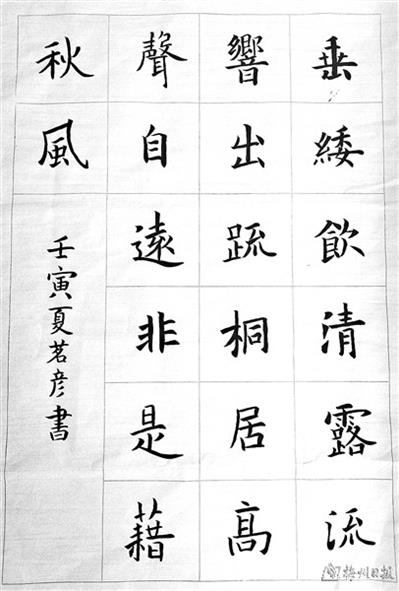 垂緌飲清露流
響出疏桐居高
聲自遠非是藉
秋風
壬寅夏茗彦書
梅州日报